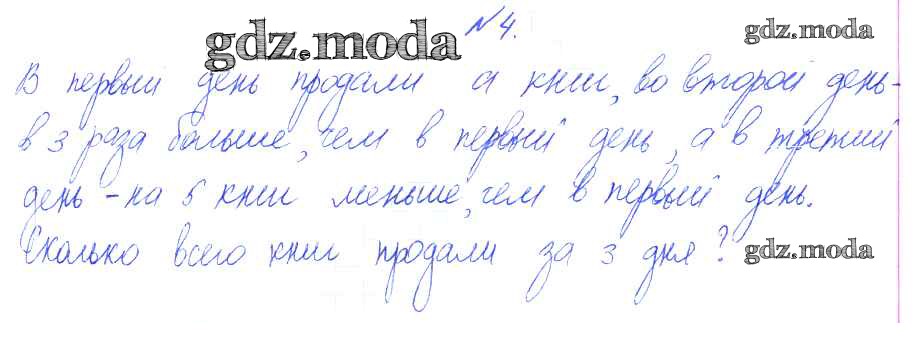 gdz.moda №4. gdz.moda
В первый день продали а книг, во второй день-
в 3 раза больше, чем в первый день, а в третий
день - на 5 книг меньше, чем в первый день.
Сколько всего книг продали за 3 дня? gdz.moda